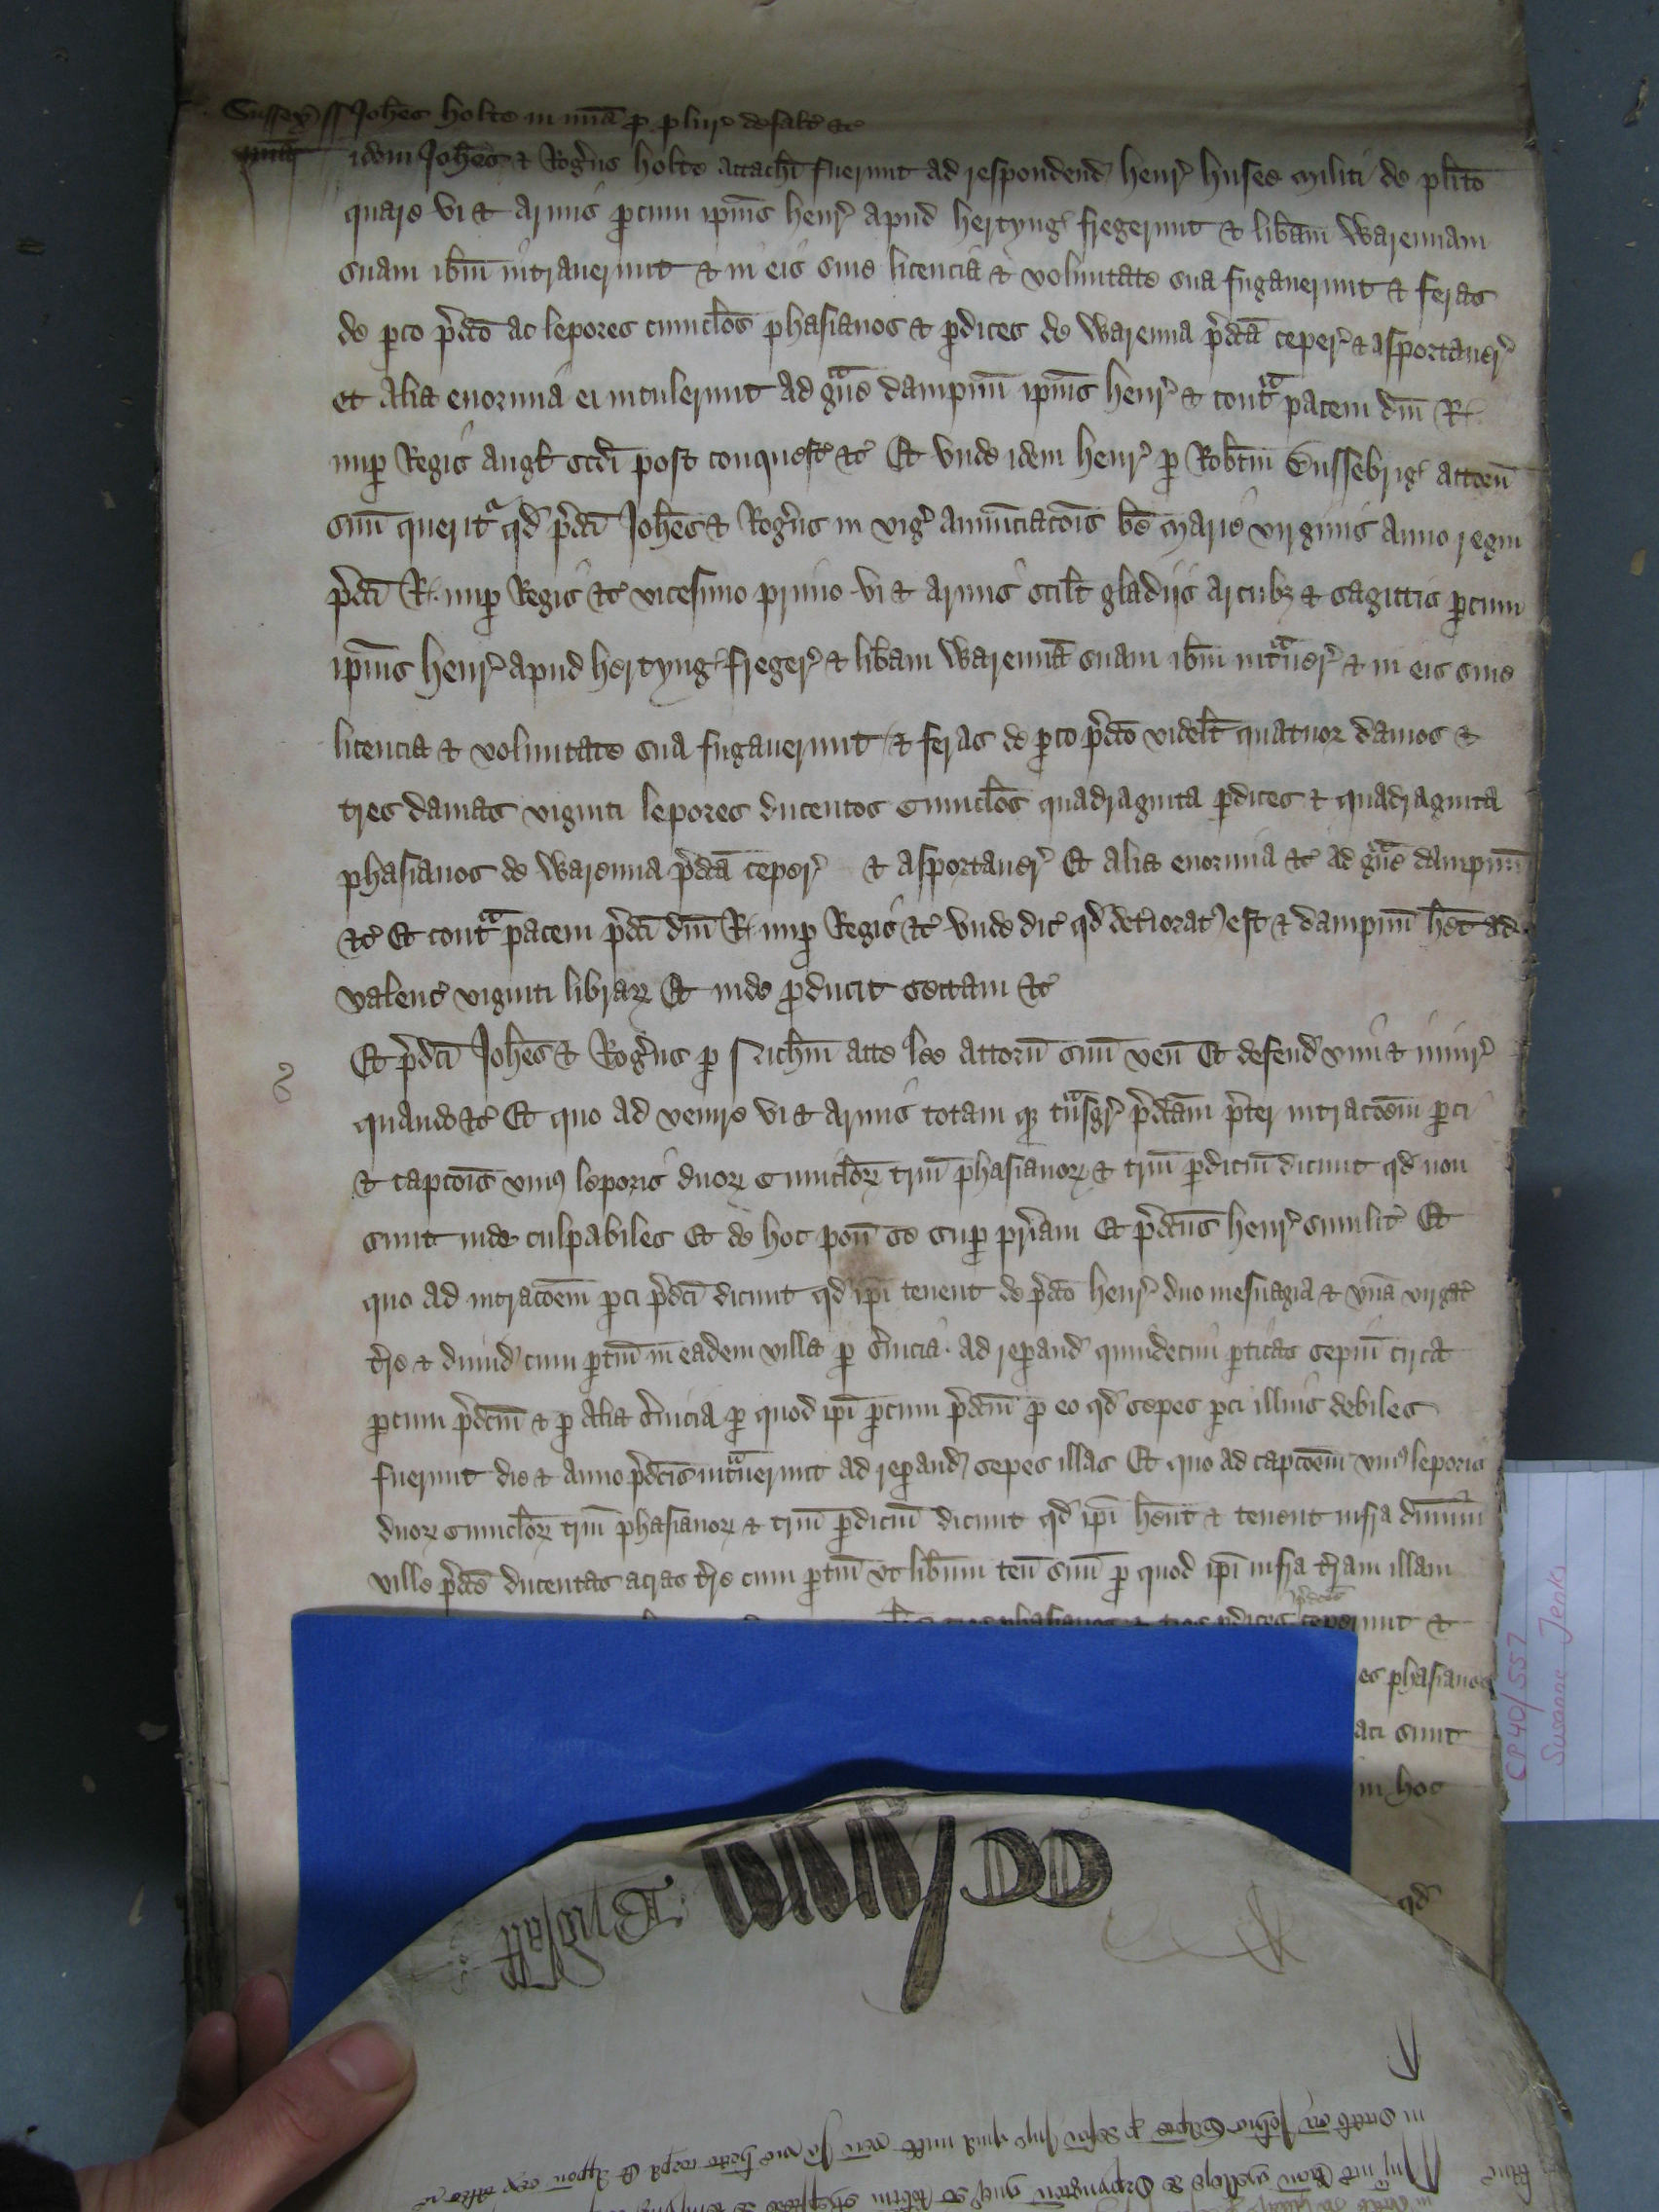 Sussex ss Joh̄es Holte in mīa p plur defalt ⁊c̄
mīa idem Joh̄es ⁊ Rog̃us Holte attach̄ fuerunt ad respondend Henr̃ Husee militi de plīto
quare vi ⁊ armis p̱cum ip̄ius Henr̃ apud Hertyng̃ fregerunt ⁊ lib̄am Warennam
suam ib̄m intrauerunt ⁊ in eis sine licencia ⁊ voluntate sua fugauerunt ⁊ feras
de p̱co p̃dc̄o ac lepores cunicl̄os phasianos ⁊ p̱dices de Warenna p̃dc̄a ceper̃ ⁊ asportauer̃
et alia enormia ei intulerunt ad gᵃue dampnū ip̄ius Henr̃ ⁊ contᵃ pacem dn̄i R.
nup̱ Regis Angl̄ scd̄i post conquest̃ ⁊c̄ Et vnde idem Henr̃ p̱ Rob̄tm Bussebrig̃ attorn̄
suū queritᵘʳ qd̄ p̃dc̄i Joh̄es ⁊ Rog̃us in vig̃ Annunciac̄ois b̄e Marie virginis anno regni
p̃dc̄i R. nup̱ Regis ⁊c̄ vicesimo primo vi ⁊ armis scil̄t gladijs arcubꝫ ⁊ sagittis p̱cum
ip̄ius Henr̃ apud Hertyng̃ freger̃ ⁊ lib̄am Warennā suam ib̄m intᵃuer̃ ⁊ in eis sine
licencia ⁊ voluntate sua fugauerunt ⁊ feras de p̱co p̃dc̄o videl̄t quatuor damos ⁊
tres damas viginti lepores ducentos cunicl̄os quadraginta p̱dices ⁊ quadraginta
phasianos de Warenna p̃dc̄a ceper̃ ⁊ asportauer̃ Et alia enormia ⁊c̄ ad gᵃue dampnū
⁊c̄ Et contᵃ pacem p̃dc̄i dn̄i R. nup̱ Regis ⁊c̄ vnde dic̃ qd̄ det̃iorat̃ est ⁊ dampnū h̄et ad
valenc̃ viginti librarꝝ Et inde p̱ducit sectam ⁊c̄
Et p̃dc̄i Joh̄es ⁊ Rog̃us p̱ Ric̄hm atte lee attorn̄ suū ven̄ Et defend vim ⁊ iniur̃
quando ⁊c̄ Et quo ad venire vi ⁊ armis totam qꝫ tᵃnsgr̃ p̃dc̄am p̃ter intrac̄oem p̱ci
⁊ capc̄ois vniꝰ leporis duorꝝ cunicl̄orꝝ triū phasianorꝝ ⁊ triū p̱diciū dicunt qd̄ non
sunt inde culpabiles Et de hoc pon̄ se sup̱ pr̄iam Et p̃dc̄us Henr̃ similit̃ Et
quo ad intrac̄oem p̱ci p̃dc̄i dicunt qd̄ ip̄i tenent de p̃dc̄o Henr̃ duo mesuagia ⁊ vnā virgat̃
t̃re ⁊ dimid̄ cum p̱tin̄ in eadem villa p̱ s̃uicia ad rep̱and̄ quindecim p̱ticas sepiū circa
p̱cum p̃dc̄m ⁊ p̱ alia s̃uicia p̱ quod ip̄i p̱cum p̃dc̄m p̱ eo qd̄ sepes p̱ci illius debiles
fuerunt die ⁊ anno p̃dc̄is intᵃuerunt ad rep̱and̄ sepes illas Et quo ad capc̄oem vniꝰ leporis
duorꝝ cunicl̄orꝝ triū phasianorꝝ ⁊ triū p̱diciū dicunt qd̄ ip̄i h̄ent ⁊ tenent infra dn̄ium
ville p̃dc̄e ducentas acras t̃re cum p̱tin̄ vt lib̄um ten̄ suū p̱ quod ip̄i infra t̃ram illam
tres phasianos ⁊ tres p̱dices p̃dc̄os ceperunt ⁊
es phasianos
ati sunt
in hoc
qd̄
CCxiiij
CP40/557
Susanne Jenks